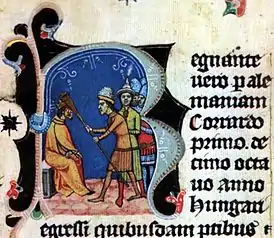 egnante
uero p ale
maniam
Corrardo
primo. de
cimo octa
uo anno
Hungari
egressi quibusdam ptibus